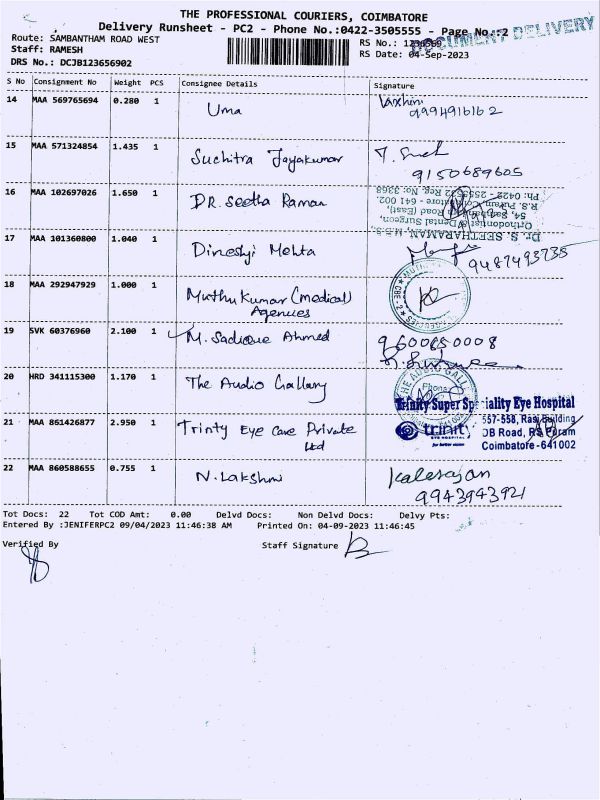 THE PROFESSIONAL COURIERS, COIMBATORE
Delivery Runsheet - PC2 - Phone No.:0422-3505555 - Page No.:2
DOCUMENT DELIVERY
Route: SAMBANTHAM ROAD WEST
RS No.:
Staff: RAMESH
RS Date: 04-Sep-2023
DRS No.: DCJB123656902
S No Consignment No Weight PCS Consignee Details Signature
14 MAA 569765694 0.280 1 Uma
9994916162
15 MAA 571324854 1.435 1 Suchitra Jayakumar
9150689605
16 MAA 102697026 1.650 1 DR. Seetha Raman
Dr. S. SEETHARAMAN,
Orthodontist & Dental Surgeon,
54, Road (East),
R.S. Puram, Coimbatore - 641 002.
Ph: 0422 - Reg No: 3268
17 MAA 101360800 1.040 1 Dineshji Mehta
9487493735
18 MAA 292947929 1.000 1 Muthu Kumar (medical)
Agencies
CBE - 2
19 SVK 60376960 2.100 1 M. Sadique Ahmed
9600650008
20 HRD 341115300 1.170 1 The Audio Gallary
THE AUDIO GALL
Phone
21 MAA 861426877 2.950 1 Trinty Eye Care Private
Ltd
Trinity Super Speciality Eye Hospital
557-558, Raj Building
DB Road, RS Puram
Coimbatore - 641 002
trinity
EYE HOSPITAL
for better vision
22 MAA 860588655 0.755 1 N. Lakshmi
Kalerajan
9943943921
Tot Docs: 22 Tot COD Amt: 0.00 Delvd Docs: Non Delvd Docs: Delvy Pts:
Entered By :JENIFERPC2 09/04/2023 11:46:38 AM Printed On: 04-09-2023 11:46:45
Verified By
Staff Signature